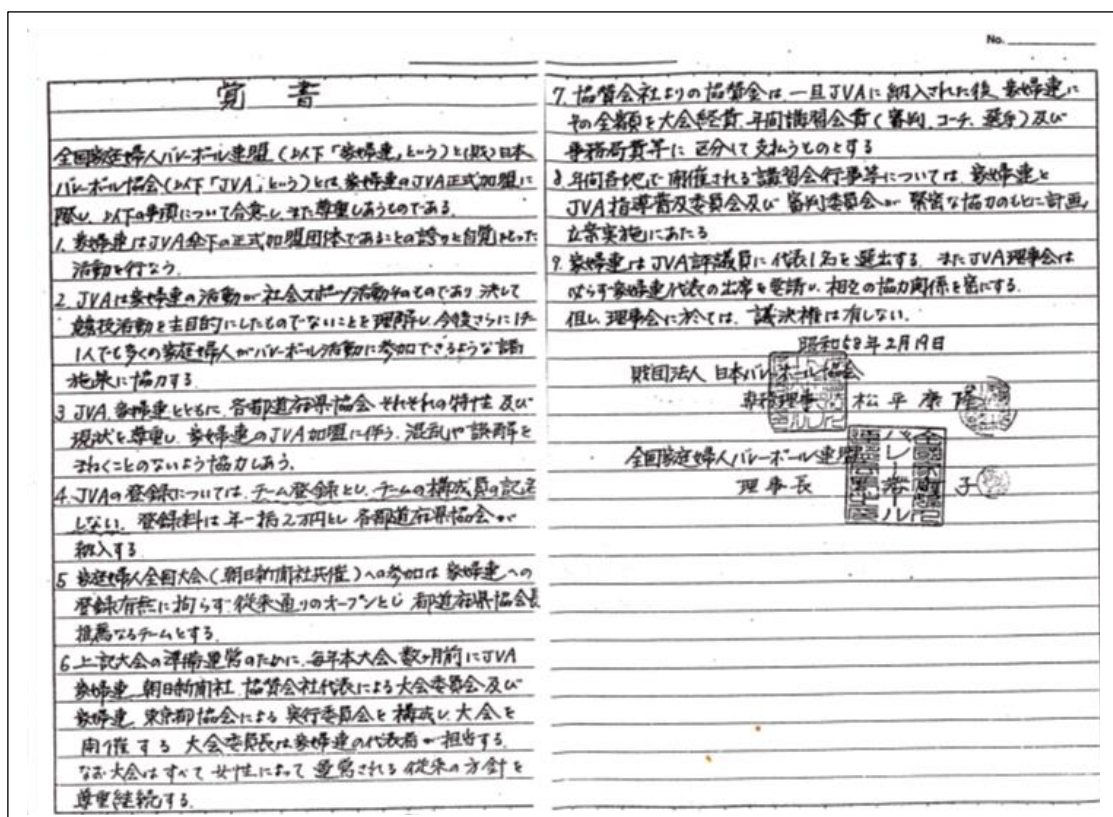 No.
覚書
全国家庭婦人バレーボール連盟(以下「家婦連」という)と(財)日本
バレーボール協会(以下「JVA」という)とは、家婦連のJVA正式加盟に
際し、以下の事項について合意し、また尊重しあうものである。
1. 家婦連はJVA傘下の正式加盟団体であることの誇りと自覚をもった
活動を行なう。
2. JVAは家婦連の活動が社会スポーツ活動そのものであり、決して
競技活動を主目的にしたものでないことを理解し、今後さらに
1人でも多くの家庭婦人がバレーボール活動に参加できるような諸
施策に協力する
3 JVA、家婦連とともに、各都道府県協会それぞれの特性及び
現状を尊重し、家婦連のJVA加盟に伴う、混乱や誤解を
まねくことのないよう協力しあう。
4. JVAの登録については、チーム登録とし、チームの構成員の記名
しない。登録料は年一括2万円とし各都道府県協会が
納入する
5 家庭婦人全国大会(朝日新聞社共催)への参加は家婦連への
登録有無に拘らず、従来通りのオープンとし都道府県協会長
推薦なるチームとする。
6. 上記大会の準備運営のために、毎年本大会、数ヶ月前にJVA
家婦連、朝日新聞社、協賛会社代表による大会委員会及び
家婦連、東京都協会による実行委員会を構成し、大会を
開催する 大会委員長は家婦連の代表者が担当する。
なお大会はすべて女性によって運営される従来の方針を
尊重継続する。
7. 協賛会社よりの協賛金は、一旦JVAに納入された後、家婦連に
その全額を大会経費、年間講習会費(審判、コーチ、選手)及び
事務局費等に区分して支払うものとする
8. 年間各地で開催される講習会行事等については、家婦連と
JVA指導普及委員会及び審判委員会が緊密な協力のもとに計画、
立案実施にあたる
9. 家婦連はJVA評議員に代表1名を選出する。またJVA理事会は
必らず家婦連代表の出席を要請し、相互の協力関係を密にする。
但し、理事会に於ては、議決権は有しない。
昭和58年2月19日
財団法人 日本バレーボール協会
専務理事 松平康隆
全国家庭婦人バレーボール連盟
理事長 子